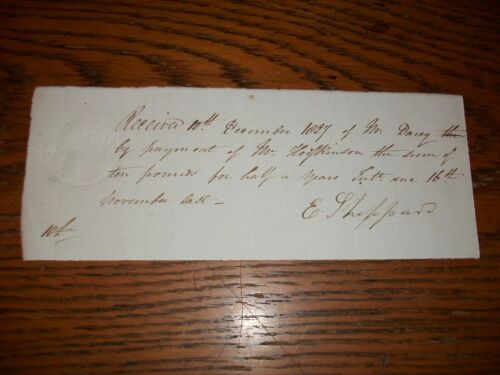 Received 10th December 1827 of Mr. Darcy the
by payment of Mr. Hodgkinson the sum of
ten pounds for half a Years Intt. due 16th
November last –
E Sheppard